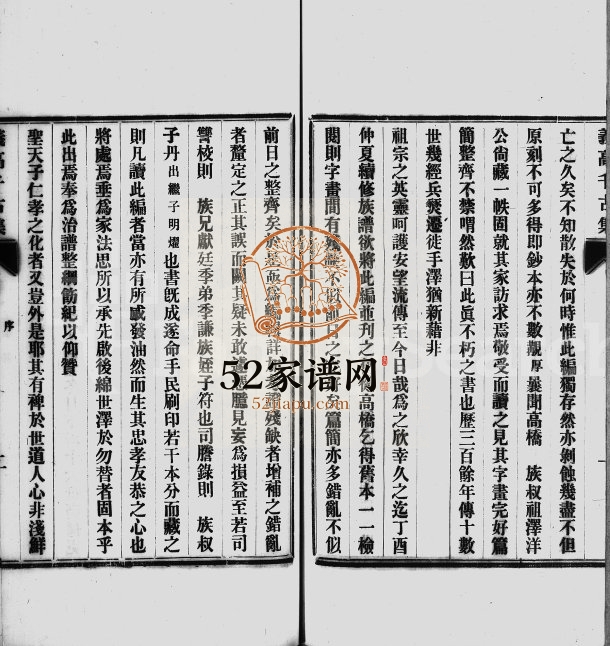 義高千古集
亡之久矣不知散失於何時惟此編獨存然亦剝蝕幾盡不但
原刻不可多得即鈔本亦不數觀厚曩聞高橋 族叔祖澤洋
公尙藏一帙固就其家訪求焉敬受而讀之見其字畫完好篇
簡整齊不禁喟然歎曰此眞不朽之書也歷三百餘年傳十數
世幾經兵燹遷徙手澤猶新藉非
祖宗之英靈呵護安望流傳至今日哉爲之欣幸久之迄丁酉
仲夏續修族譜欲將此編並刊之 高橋乞得舊本一一檢
閱則字畫間有 不似前日之 矣篇簡亦多錯亂不似
前日之整齊矣於是 爲 詳 殘缺者增補之錯亂
者釐定之正其誤而闕其疑未敢 臆見妄爲損益至若司
讐校則 族兄獻廷季弟季謙族姪子符也司謄錄則 族叔
子丹出繼子明燿也書旣成遂命手民刷印若干本分而藏之
則凡讀此編者當亦有所感發油然而生其忠孝友恭之心也
將處焉垂爲家法思所以承先啟後綿世澤於勿替者固本乎
此出焉奉爲治譜整綱飭紀以仰贊
聖天子仁孝之化者又豈外是耶其有裨於世道人心非淺鮮
義高千古集
序
52家谱网
52jiapu.com